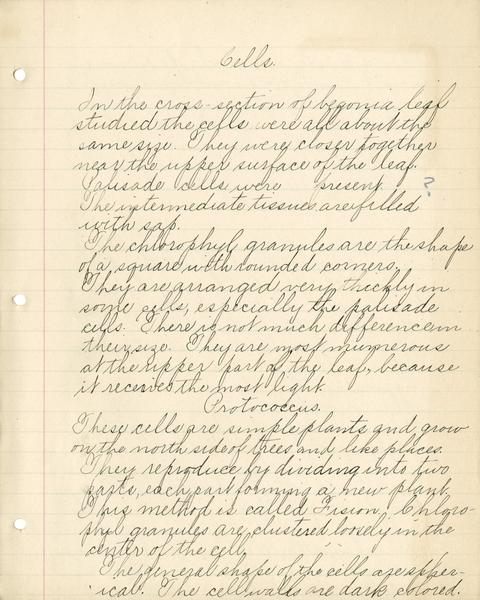 Cells.
In the cross-section of begonia leaf
studied the cells were all about the
same size. They were closer together
near the upper surface of the leaf.
Palisade cells were present. ?
The intermediate tissues are filled
with sap.
The chlorophyl granules are the shape
of a square with rounded corners.
They are arranged very theckly in
some cells, especially the palisade
cells. There is not much difference in
their size. They are most numerous
at the upper part of the leaf, because
it receives the most light.
Protococcus.
These cells are simple plants and grow
on the north side of trees and like places.
They reproduce by dividing into two
parts, each part forming a new plant.
This method is called Fision. Chloro-
phyl granules are clustered loosely in the
center of the cell.
The general shape of the cells are spher-
ical. The cell walls are dark colored.